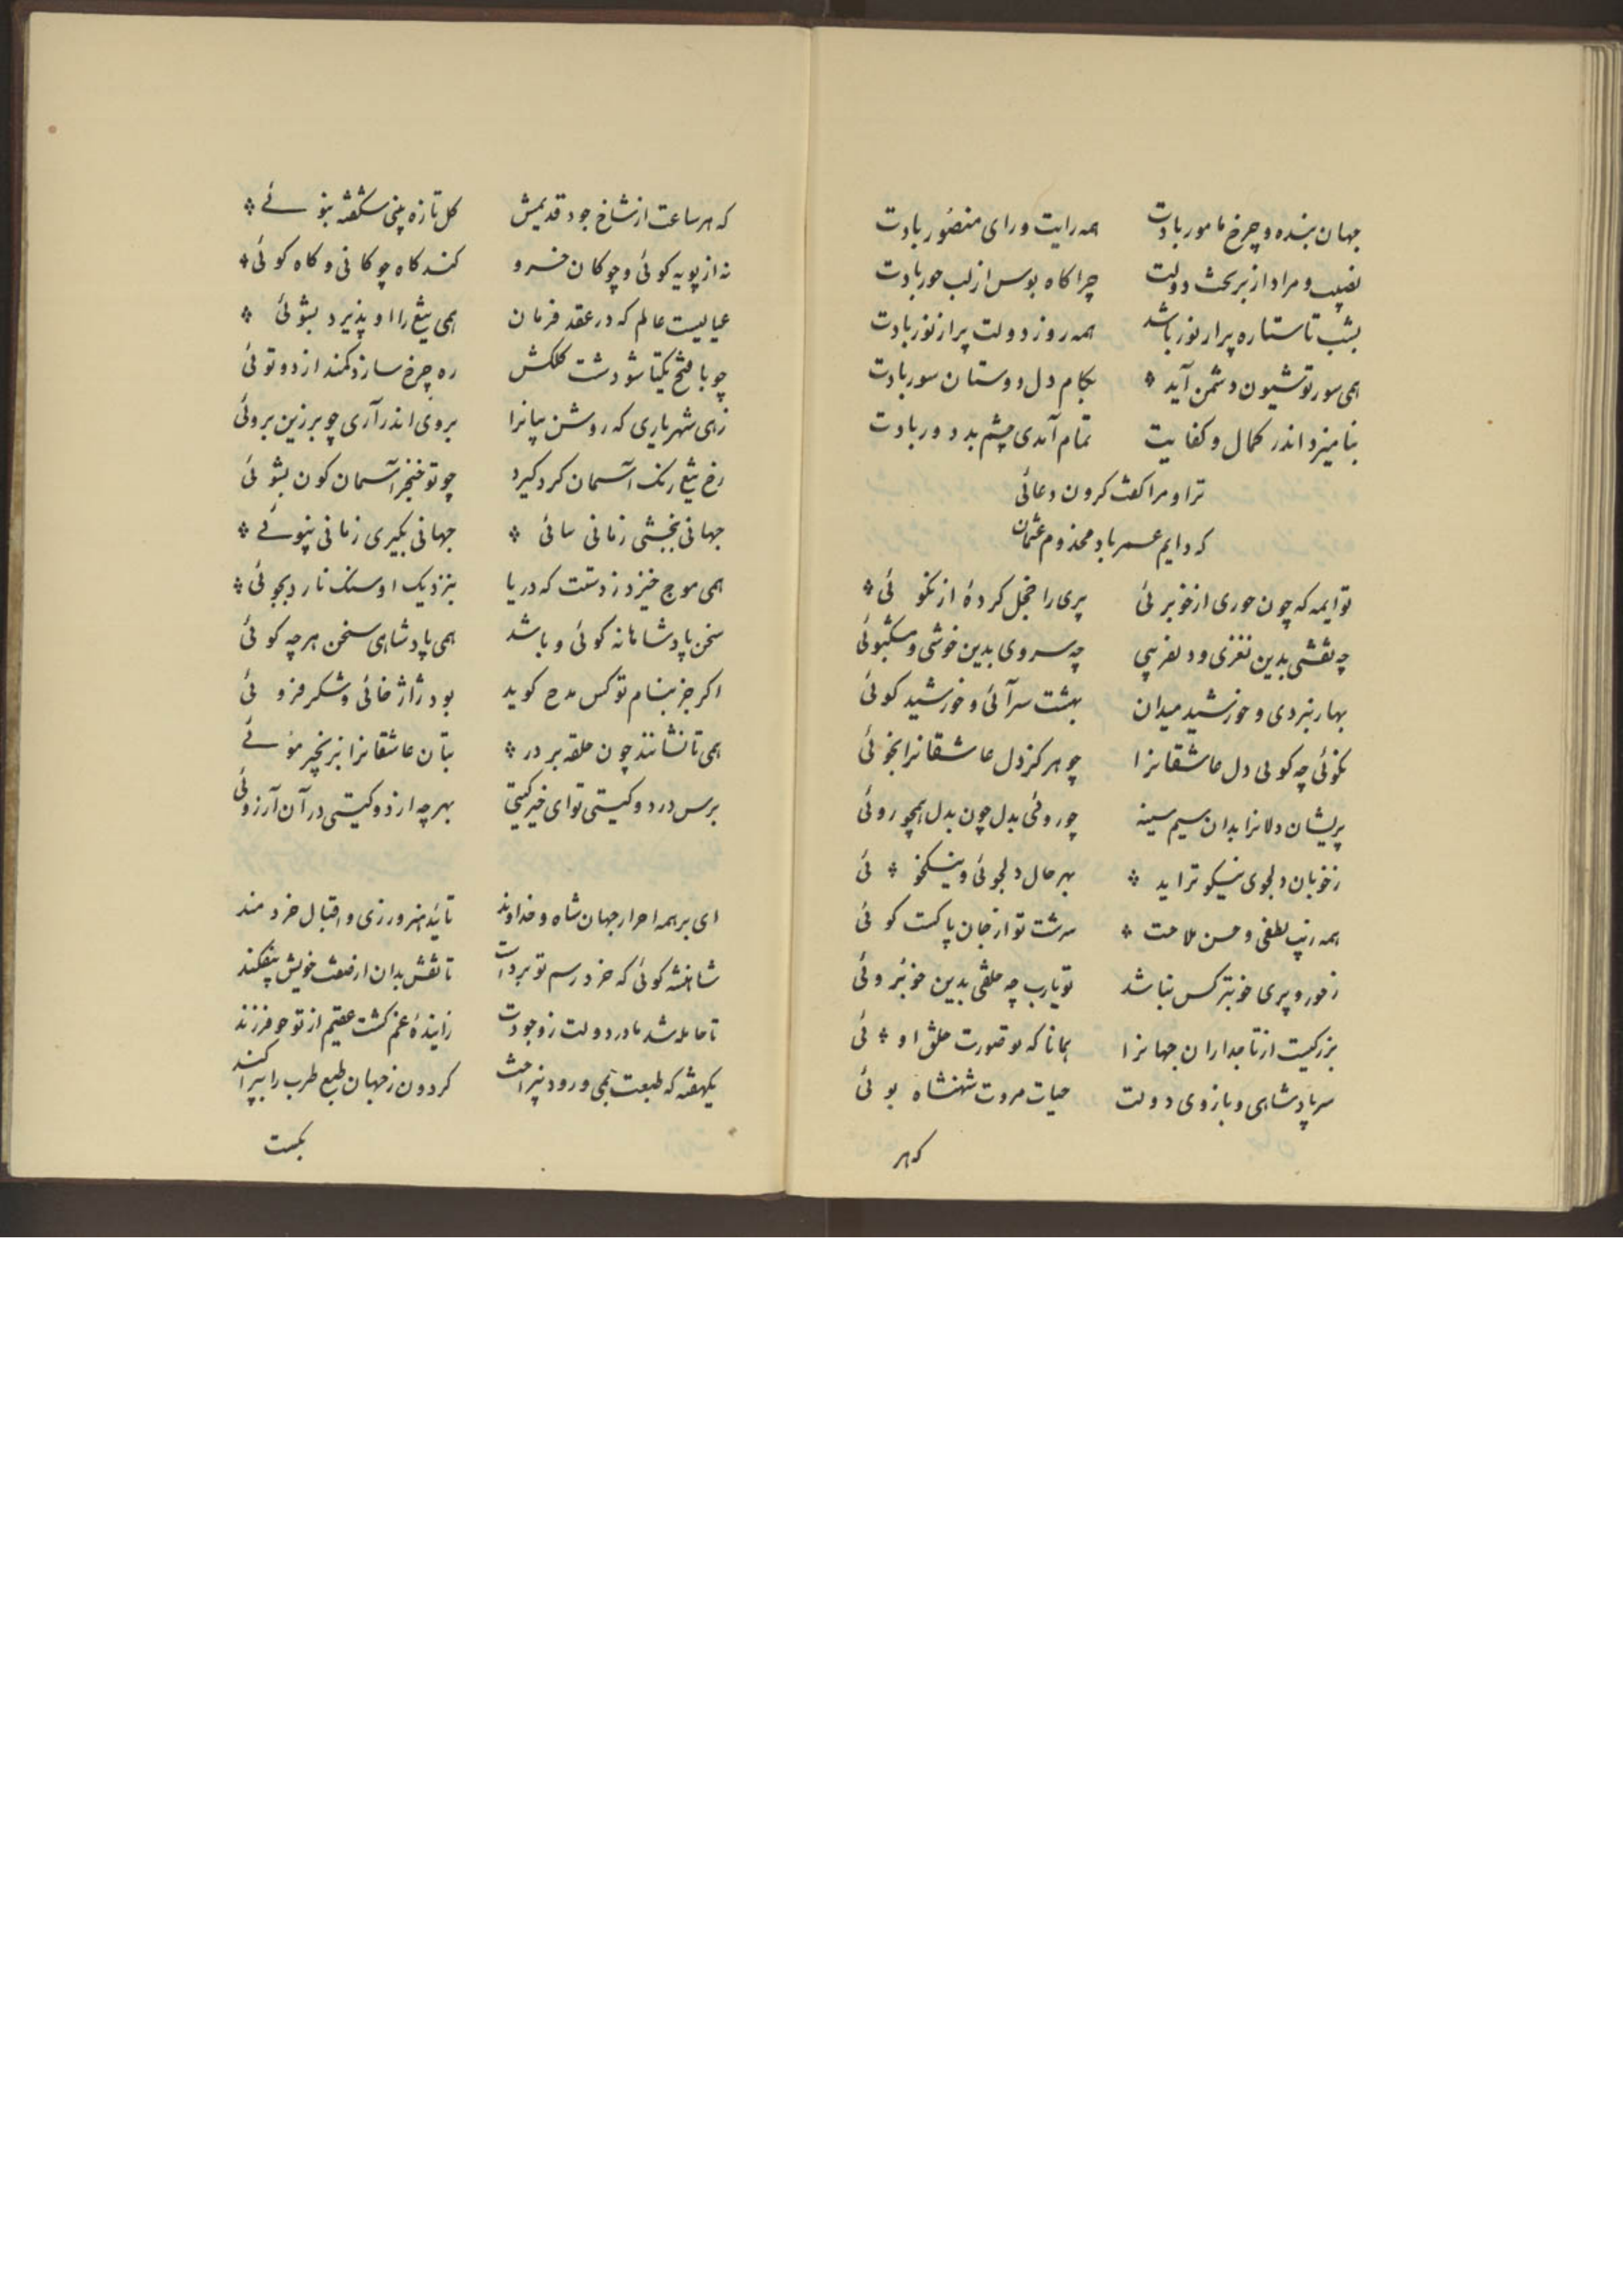 جهان بنده و چرخ مامور بادت همه رایت و رای منصور بادت
نصیب و مراد از بر بخت دولت چرا کاه بوس از لب حور بادت
بشب تا ستاره پر از نور باشد همه روز دولت پر از نور بادت
همی سور تو شیون دشمن آید بکام دل دوستان سور بادت
بنامیزد اندر کمال و کفایت تمام آمدی چشم بد دور بادت
ترا و مرا کفت کردون دعائی
که دایم عمر باد مخدوم عثمان
تو ایمه که چون حوری از خوبرئی پری را خجل کردهٔ از نکوئی
چه نقشی بدین نغزی و دلفریبی چه سروی بدین خوشی و مشکبوئی
بهار نبردی و خورشید میدان بهشت سرآئی و خورشید کوئی
نکوئی چه کوئی دل عاشقانرا چو هرکز دل عاشقانرا نجوئی
پریشان دلانرا بدان سیم سینه چو روئی بدل چون بدل همچو روئی
ز خوبان دلجوی نیکوتر اید بهر حال دلجوئی و نیکخوئی
همه زیب لطفی و حسن ملاحت سرشت تو از جان پاکست کوئی
ز حور و پری خوبتر کس نباشد تو یارب چه خلقی بدین خوبروئی
بزرکیست از تاجداران جهانرا همانا که تو صورت خلق اوئی
سر پادشاهی و بازوی دولت حیات مروت شهنشاه بوئی
که هر
که هر ساعت از شاخ جود قدیمش کل تازه بینی شکفته بنوئے
نه از پویه کوئی و چوکان خسرو کند کاه چوکانی و کاه کوئی
عیالیست عالم که در عقد فرمان همی تیغ را او پذیرد بشوئی
چو با فتح یکتا شود شت کلکش ره چرخ سازد کمند از دوتوئی
زهی شهریاری که روشن بیانرا بروی اندر آری چو برزین بروئی
رخ تیغ رنک آسمان کرد کیرد چو تو خنجر آسمان کون بشوئی
جهانی ببخشی زمانی سائی جهانی بکیری زمانی نپوئے
همی موج خیزد ز دستت که دریا بنزدیک او سنک نارد بجوئی
سخن پادشاهانه کوئی و باشد همی پادشاهی سخن هرچه کوئی
اکر جز بنام تو کس مدح کوید بود ژاژ خائی و شکر فروئی
همی تا نشانند چون حلقه بر در بتان عاشقانرا بزنجیر موئے
برس در دو کیتی تو ای خیر کیتی بهرچه از دو کیتی در آن آرزوئی
ای بر همه احرار جهان شاه و خداوند تائید هنرورزی و اقبال خردمند
شاهنشه کوئی که خرد رسم تو برداشت تا نقش بدان از صفت خویش بیفکند
تا حامله شد مادر دولت ز وجودت زایندهٔ غم کشت عقیم از تو چو فرزند
یکهفته که طبعت بمی و رود نپرداخت کردون ز جهان طبع طرب را بپراکند
بکست